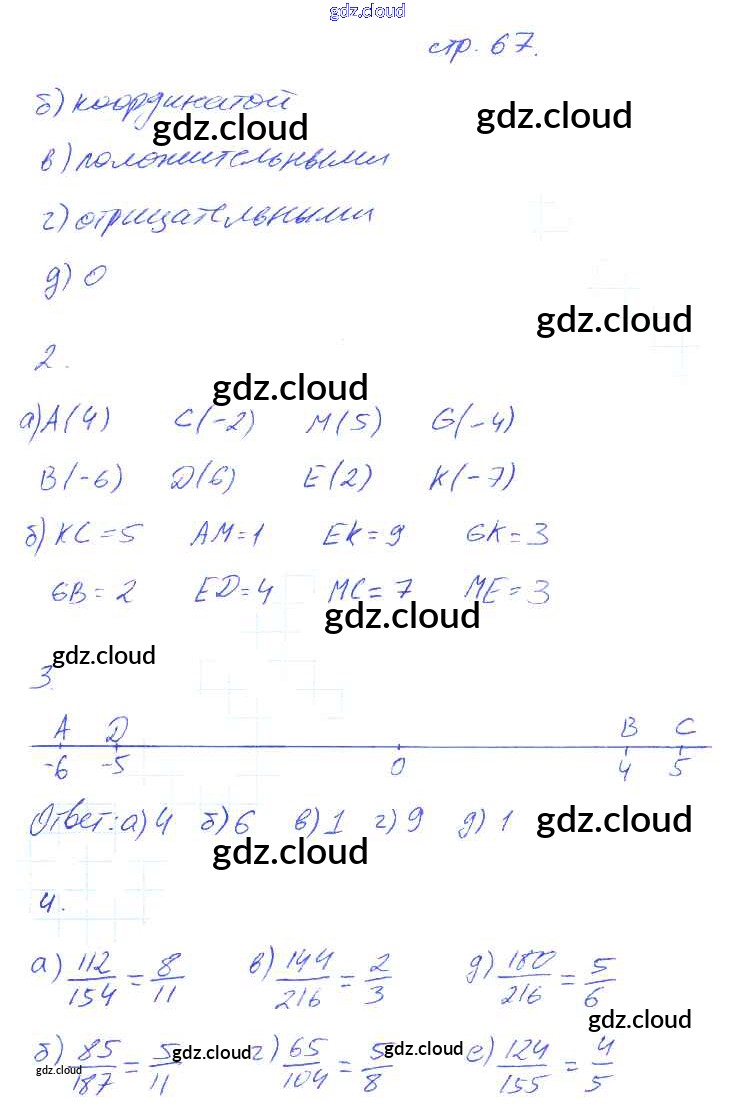 gdz.cloud
стр. 67.
б) координатой
gdz.cloud gdz.cloud
в) положительными
г) отрицательными
д) 0
gdz.cloud
2.
gdz.cloud
а) A(4) C(-2) M(5) G(-4)
B(-6) D(6) E(2) K(-7)
б) KC = 5 AM = 1 EK = 9 GK = 3
GB = 2 ED = 4 MC = 7 ME = 3
gdz.cloud
gdz.cloud
3.
A D B C
-6 -5 0 4 5
Ответ: а) 4 б) 6 в) 1 г) 9 д) 1 gdz.cloud
gdz.cloud
4.
а) 112/154 = 8/11 в) 144/216 = 2/3 д) 180/216 = 5/6
gdz.cloud
б) 85/187 = 5/11 gdz.cloud г) 65/104 = 5/8 gdz.cloud е) 124/155 = 4/5
gdz.cloud